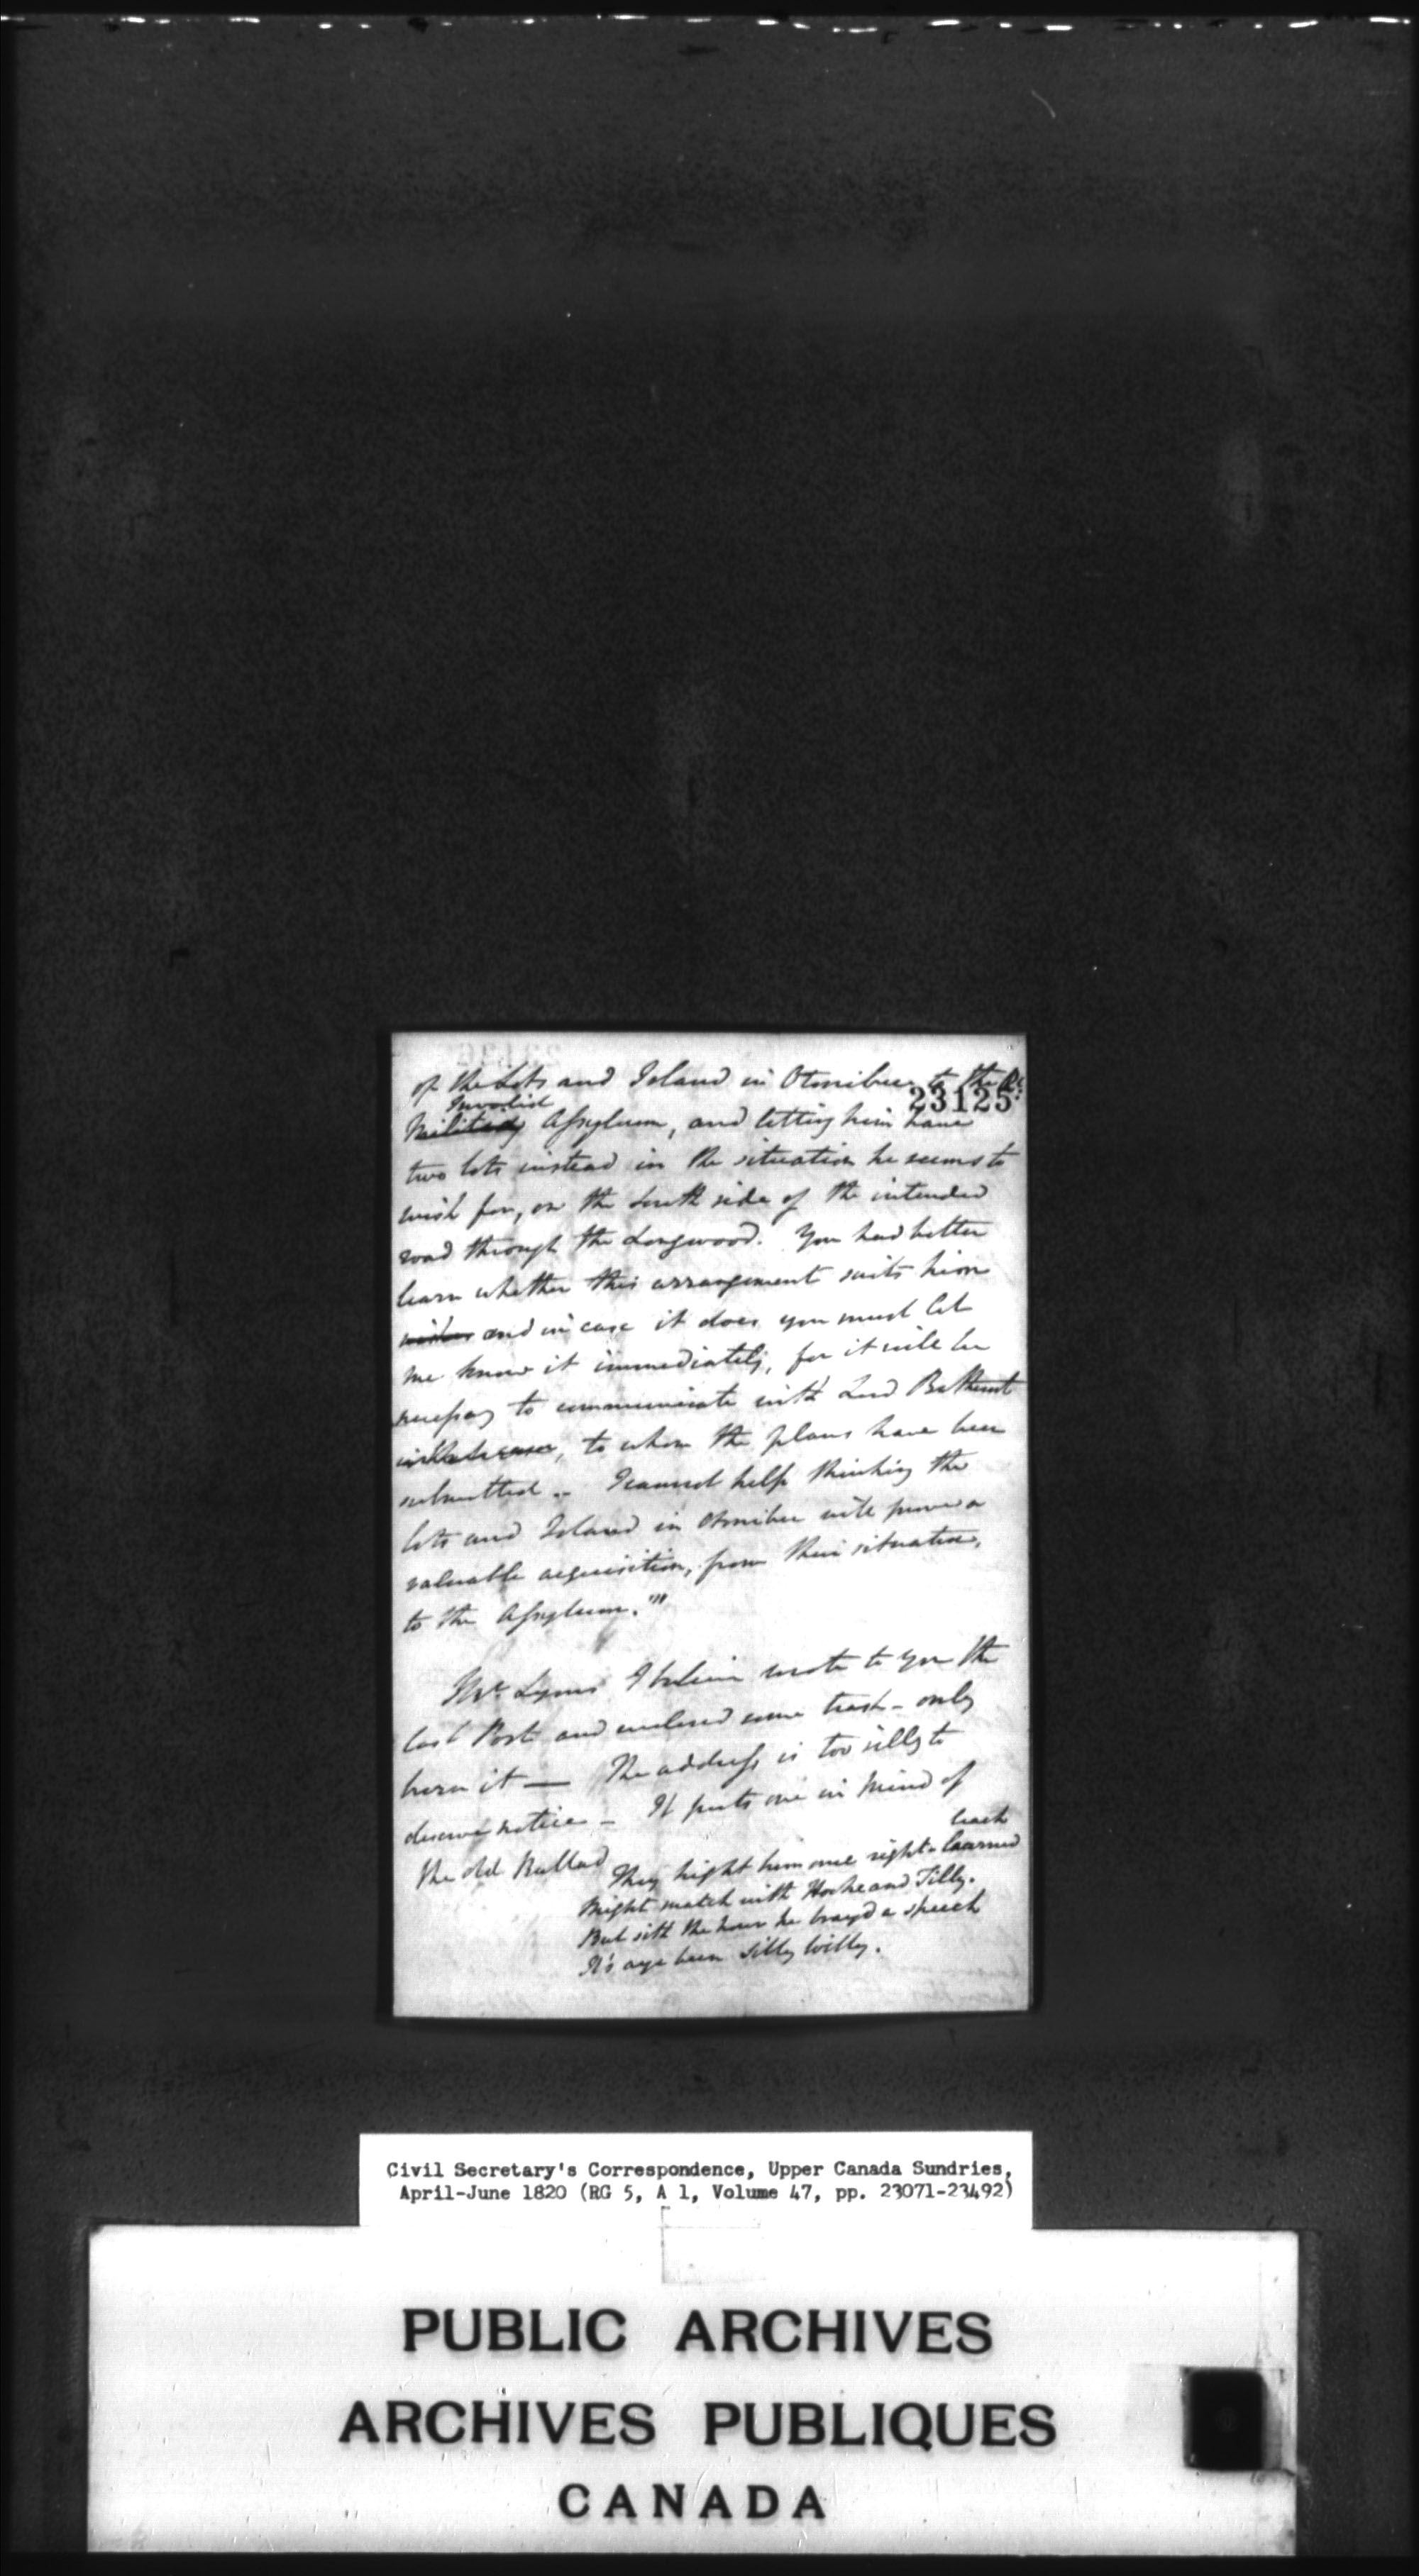 of the Lots and Island in Otonibee to the Rl.
23125
Invalid
Military Assylum, and letting him have
two lots instead in the situation he seems to
wish for, on the South side of the intended
road through the Longwood. You had better
learn whether this arrangement suits him
wishes and in case it does you must let
me know it immediately, for it will be
necessary to communicate with Lord Bathurst
to whom the plans have been
submitted .. I cannot help thinking the
lots and Island in Otonibee will prove a
valuable acquisition, from their situation,
to the Assylum."
Mr. Lyons I believe wrote to you the
last Post and enclosed some trash - only
burn it — The address is too silly to
deserve notice - It puts one in mind of
the old Ballad
leach
They hight him once right learned
Might match with Hooke and Tilly.
But sith the hour he bray'd a speech
It's aye been Silly Willy.
Civil Secretary's Correspondence, Upper Canada Sundries,
April-June 1820 (RG 5, A 1, Volume 47, pp. 23071-23492)
PUBLIC ARCHIVES
ARCHIVES PUBLIQUES
CANADA